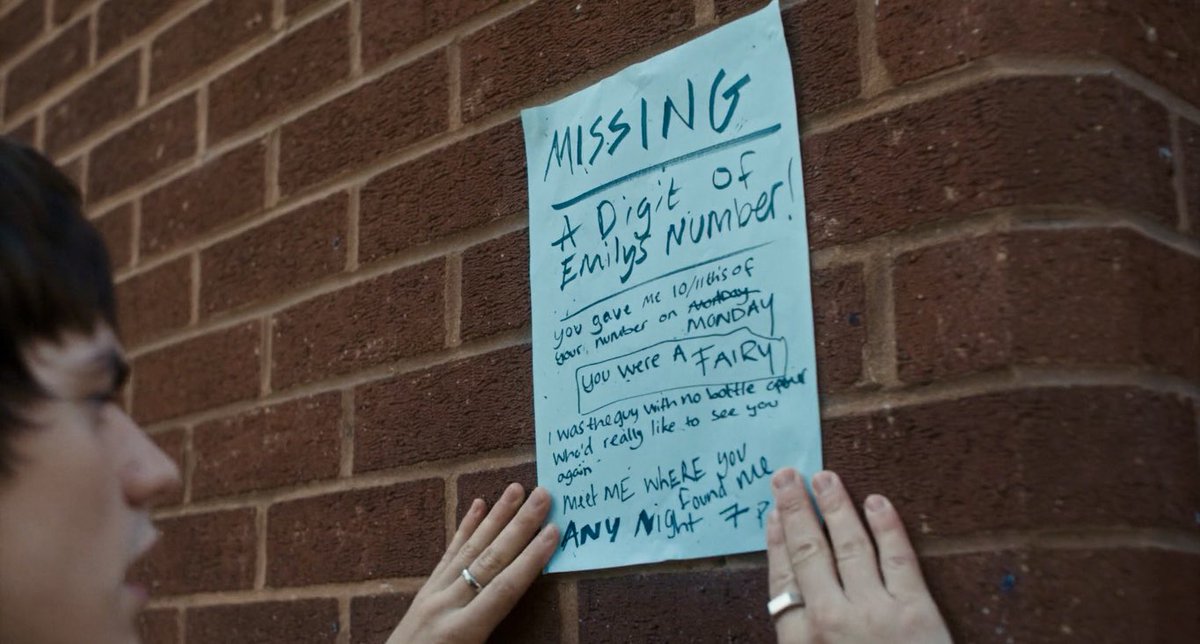 MISSING
A Digit of
Emilys Number!
you gave me 10/11ths of
your number on Monday
MONDAY
you were A FAIRY
I was the guy with no bottle opener
who'd really like to see you
again
Meet ME WHERE you
found me
ANY Night 7 P